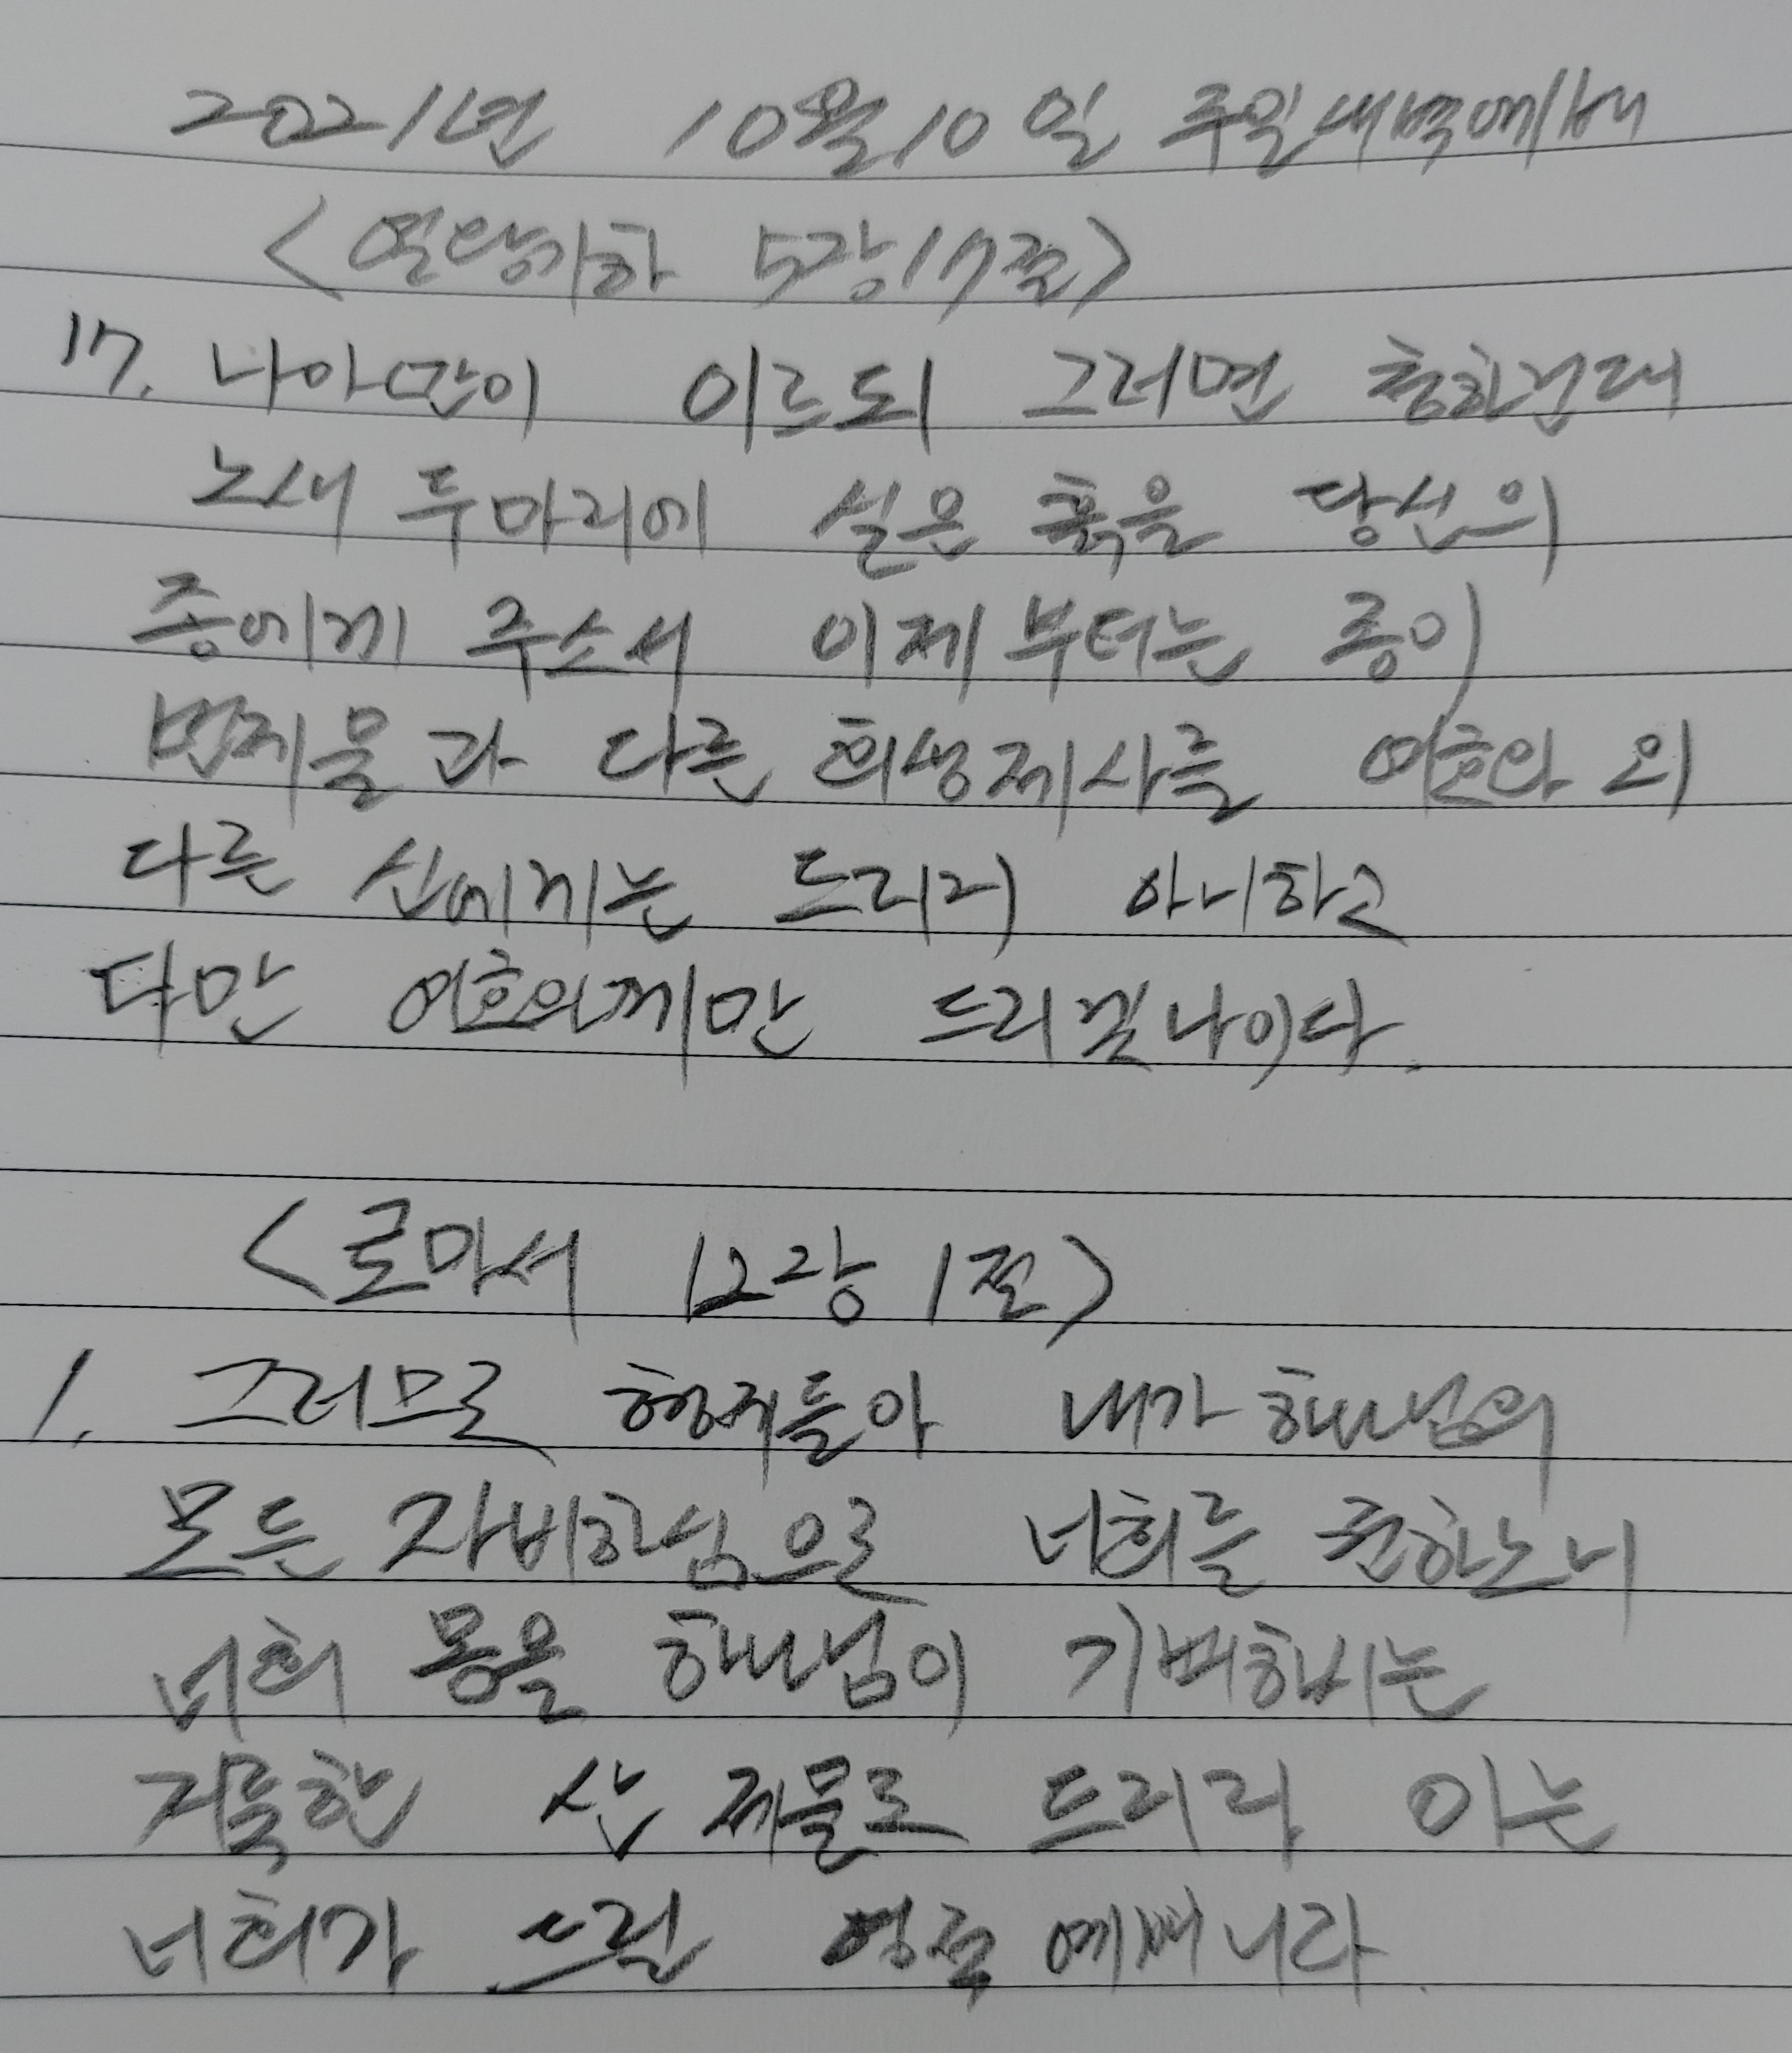 2021년 10월 10일 주일새벽예배
<열왕기하 5장 17절>
17. 나아만이 이르되 그러면 청하건대
노새 두마리에 실은 흙을 당신의
종에게 주소서 이제부터는 종이
번제물과 다른 희생제사를 여호와 외
다른 신에게는 드리지 아니하고
다만 여호와께만 드리겠나이다.
<로마서 12장 1절>
1. 그러므로 형제들아 내가 하나님의
모든 자비하심으로 너희를 권하노니
너희 몸을 하나님이 기뻐하시는
거룩한 산 제물로 드리라 이는
너희가 드릴 영적 예배니라.